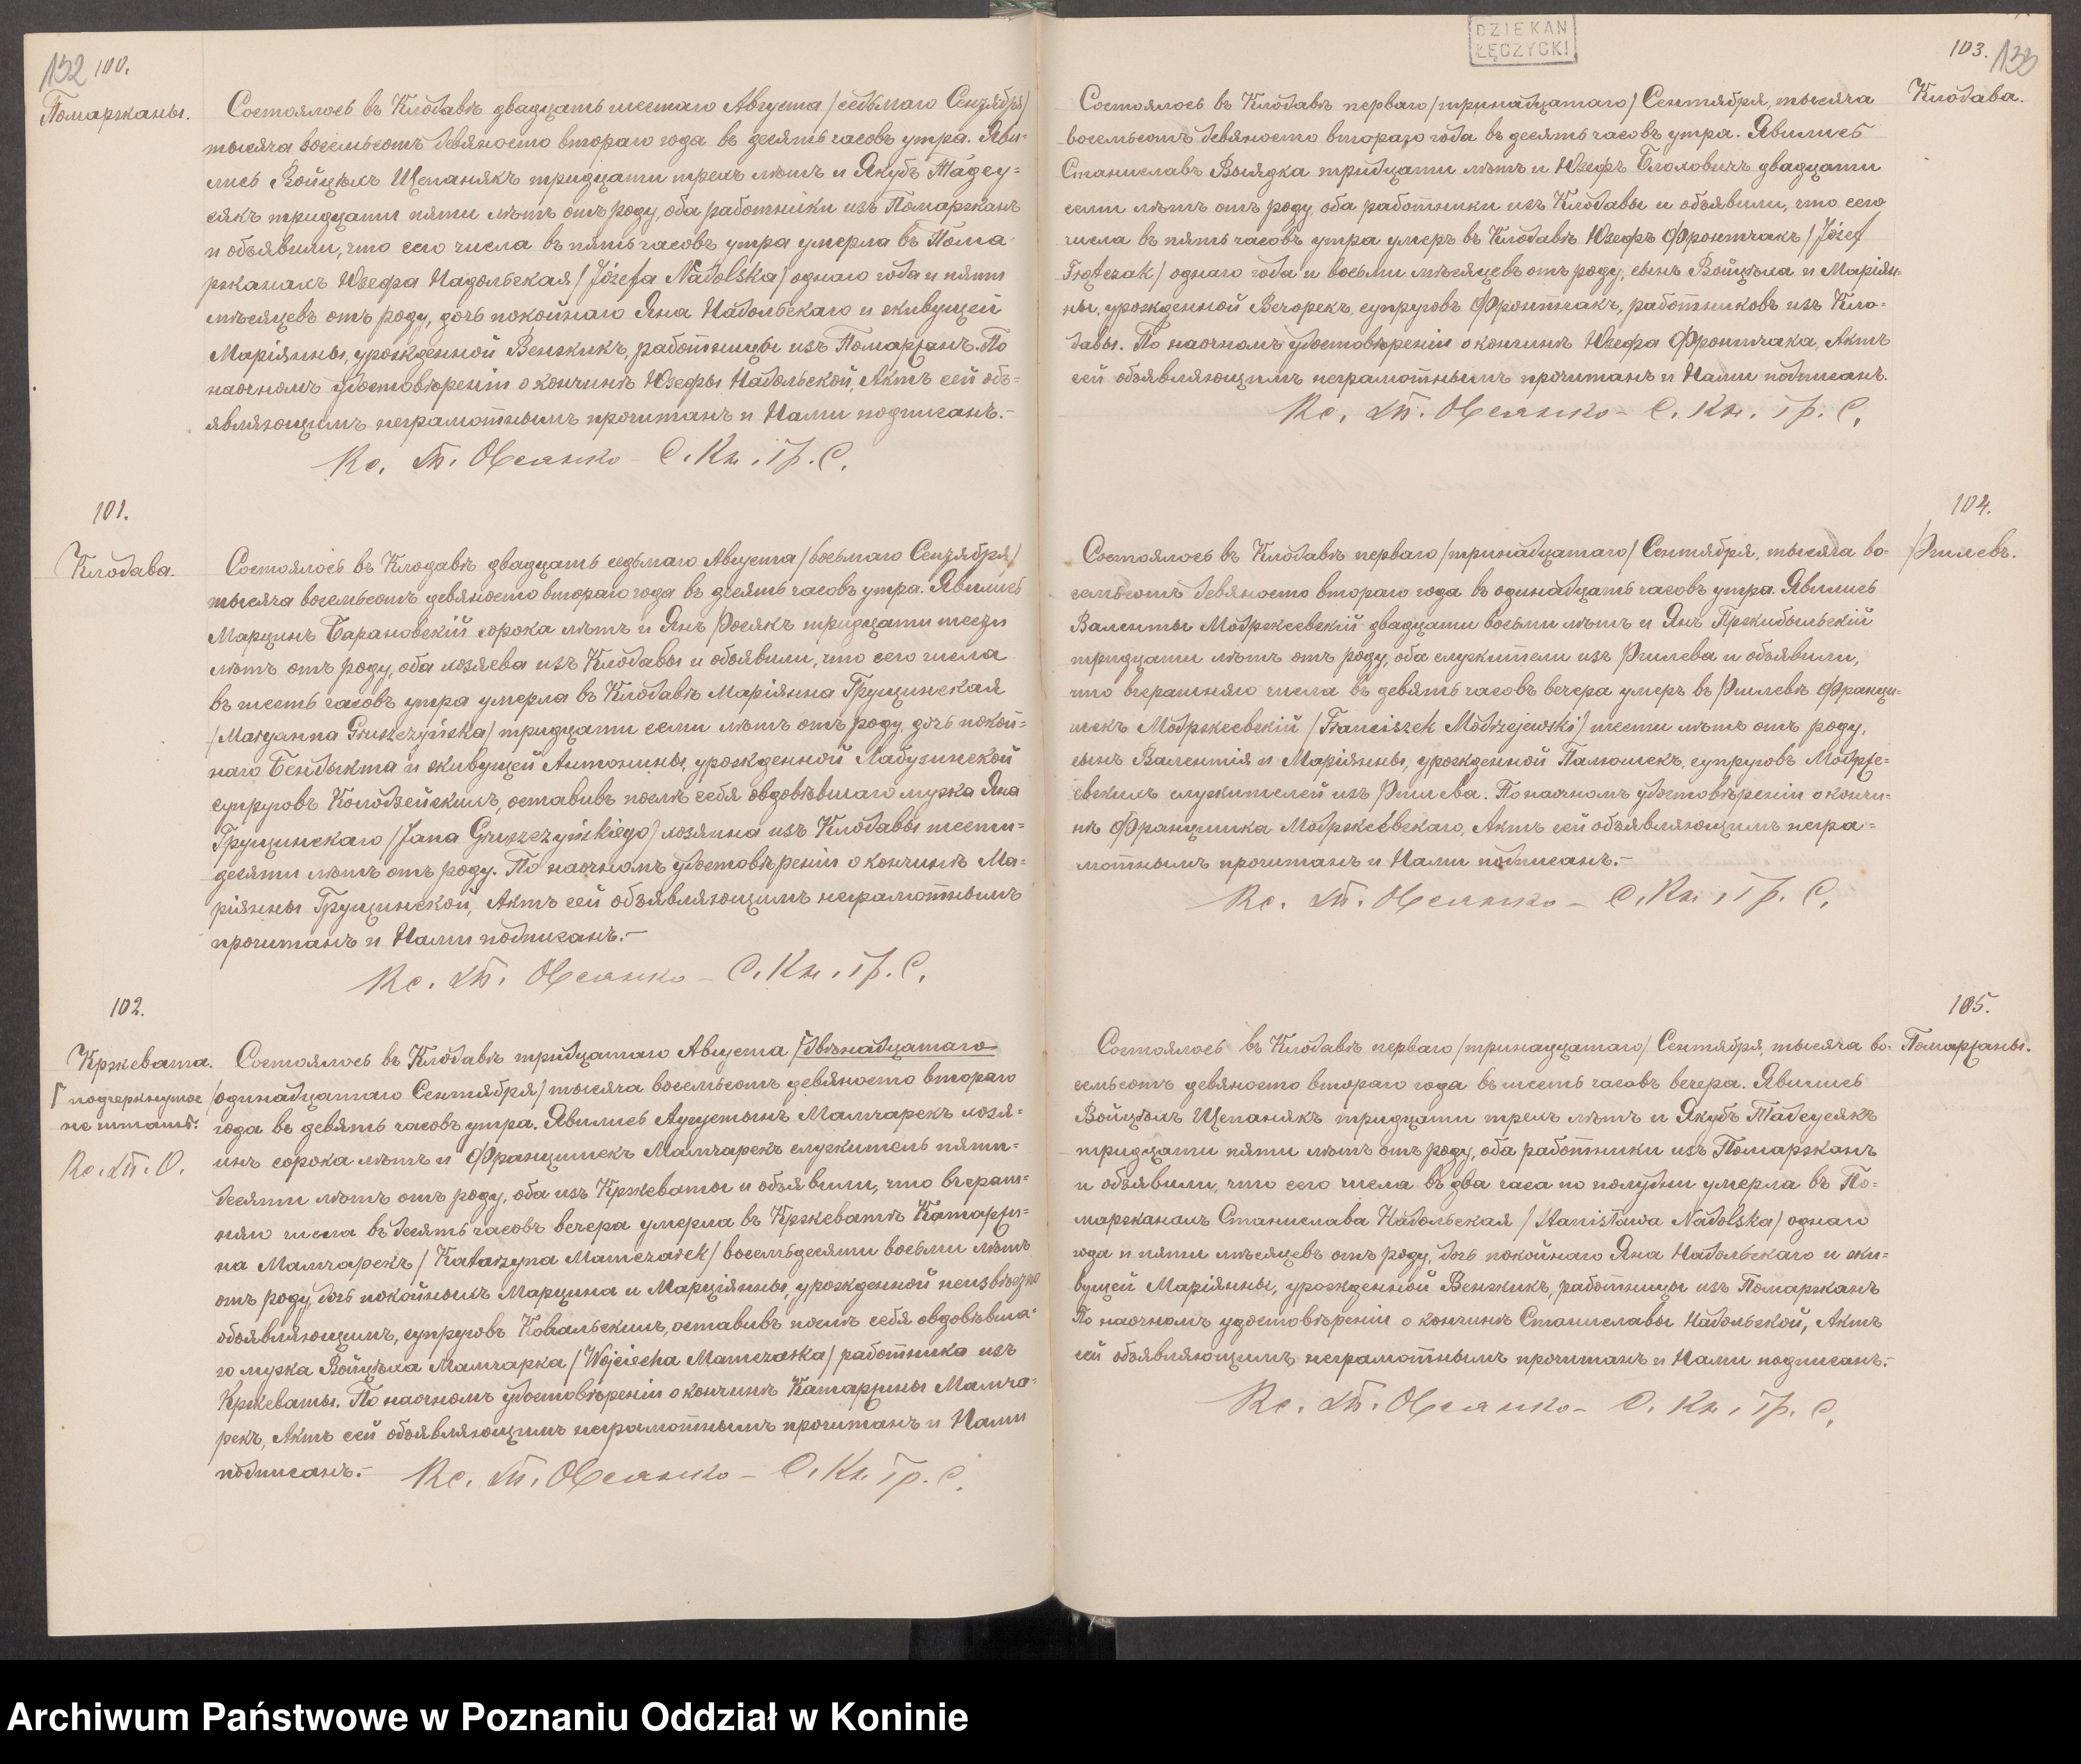 132 100.
Помаржаны.
Состоялось въ Клодавѣ двадцать шестаго Августа /седьмаго Сентября/
тысяча восемьсотъ девяносто втораго года въ десять часовъ утра. Яви-
лись Войцѣхъ Щепанякъ тридцати трехъ лѣтъ и Якубъ Тадеу-
сякъ тридцати пяти лѣтъ отъ роду, оба работники изъ Помаржанъ
и объявили, что сего числа въ пять часовъ утра умерла въ Пома-
ржанахъ Юзефа Надольская /Józefa Nadolska/ одного года и пяти
мѣсяцевъ отъ роду, дочь покойнаго Яна Надольскаго и живущей
Маріянны, урожденной Венжикъ, работницы изъ Помаржанъ. По
наочномъ удостовѣреніи о кончинѣ Юзефы Надольской, Актъ сей объ-
являющимъ неграмотнымъ прочитанъ и Нами подписанъ.-
Кс. Овсянко - С. Кн. Гр. С.
101.
Клодава.
Состоялось въ Клодавѣ двадцать седьмаго Августа /восьмаго Сентября/
тысяча восемьсотъ девяносто втораго года въ десять часовъ утра. Явились
Марцинъ Барановскій сорока лѣтъ и Янъ Росякъ тридцати шести
лѣтъ отъ роду, оба хозяева изъ Клодавы и объявили, что сего числа
въ шесть часовъ утра умерла въ Клодавѣ Маріянна Грущинская
/Maryanna Gruszczyńska/ тридцати семи лѣтъ отъ роду, дочь покой-
наго Бендыкта и живущей Антонины, урожденной Лабузинской
супруговъ Колодзейскихъ, оставивъ послѣ себя овдовѣвшаго мужа Яна
Грущинскаго /Jana Gruszczyńskiego/ хозяина изъ Клодавы шести-
десяти лѣтъ отъ роду. По наочномъ удостовѣреніи о кончинѣ Ма-
ріянны Грущинской, Актъ сей объявляющимъ неграмотнымъ
прочитанъ и Нами подписанъ.-
Кс. Овсянко - С. Кн. Гр. С.
102.
Кржевата.
подчеркнутое
не читать:
Кс. О.
Состоялось въ Клодавѣ тридцатаго Августа /двѣнадцатаго
/одинадцатаго Сентября/ тысяча восемьсотъ девяносто втораго
года въ девять часовъ утра. Явились Аугустынъ Мамчарекъ хозя-
инъ сорока лѣтъ и Францишекъ Мамчарекъ служитель пяти-
десяти лѣтъ отъ роду, оба изъ Кржеваты и объявили, что вчераш-
няго числа въ десять часовъ вечера умерла въ Кржеватѣ Катаржи-
на Мамчарекъ /Katarzyna Mamczarek/ восемьдесяти восьми лѣтъ
отъ роду, дочь покойныхъ Марцина и Марціянны, урожденной неизвѣстно
объявляющимъ, супруговъ Ковальскихъ, оставивъ послѣ себя овдовѣвша-
го мужа Войцѣха Мамчарка /Wojciecha Mamczarka/ работника изъ
Кржеваты. По наочномъ удостовѣреніи о кончинѣ Катаржины Мамча-
рекъ, Актъ сей объявляющимъ неграмотнымъ прочитанъ и Нами
подписанъ.- Кс. Овсянко - С. Кн. Гр. С.
DZIEKAN
ŁĘCZYCKI
103. 133
Клодава.
Состоялось въ Клодавѣ перваго /тринадцатаго/ Сентября, тысяча
восемьсотъ девяносто втораго года въ десять часовъ утра. Явились
Станиславъ тридцати лѣтъ и Юзефъ двадцати
семи лѣтъ отъ роду, оба работники изъ Клодавы и объявили, что сего
числа въ пять часовъ утра умеръ въ Клодавѣ Юзефъ Фронтчакъ /Józef
Frątczak/ одного года и восьми мѣсяцевъ отъ роду, сынъ Войцѣха и Маріян-
ны, урожденной Вечорекъ, супруговъ Фронтчакъ, работниковъ изъ Кло-
давы. По наочномъ удостовѣреніи о кончинѣ Юзефа Фронтчака, Актъ
сей объявляющимъ неграмотнымъ прочитанъ и Нами подписанъ.
Кс. Овсянко - С. Кн. Гр. С.
104.
Рышевъ.
Состоялось въ Клодавѣ перваго /тринадцатаго/ Сентября, тысяча во-
семьсотъ девяносто втораго года въ одинадцать часовъ утра. Явились
Валенты Модржеевскій двадцати восьми лѣтъ и Янъ Пржибыльскій
тридцати лѣтъ отъ роду, оба служители изъ и объявили,
что вчерашняго числа въ девять часовъ вечера умеръ въ Франци-
шекъ Модржеевскій /Franciszek Modrzejewski/ шести лѣтъ отъ роду,
сынъ Валентія и Маріянны, урожденной Палюшекъ, супруговъ Модрже-
евскихъ служителей изъ По наочномъ удостовѣреніи о кончи-
нѣ Францишка Модржеевскаго, Актъ сей объявляющимъ негра-
мотнымъ прочитанъ и Нами подписанъ.-
Кс. Овсянко - С. Кн. Гр. С.
105.
Помаржаны.
Состоялось въ Клодавѣ перваго /тринадцатаго/ Сентября, тысяча во-
семьсотъ девяносто втораго года въ шесть часовъ вечера. Явились
Войцѣхъ Щепанякъ тридцати трехъ лѣтъ и Якубъ Тадеусякъ
тридцати пяти лѣтъ отъ роду, оба работники изъ Помаржанъ
и объявили, что сего числа въ два часа по полудни умерла въ По-
маржанахъ Станислава Надольская /Stanisława Nadolska/ одного
года и пяти мѣсяцевъ отъ роду, дочь покойнаго Яна Надольскаго и жи-
вущей Маріянны, урожденной Венжикъ, работницы изъ Помаржанъ
По наочномъ удостовѣреніи о кончинѣ Станиславы Надольской, Актъ
сей объявляющимъ неграмотнымъ прочитанъ и Нами подписанъ.-
Кс. Овсянко - С. Кн. Гр. С.
Archiwum Państwowe w Poznaniu Oddział w Koninie